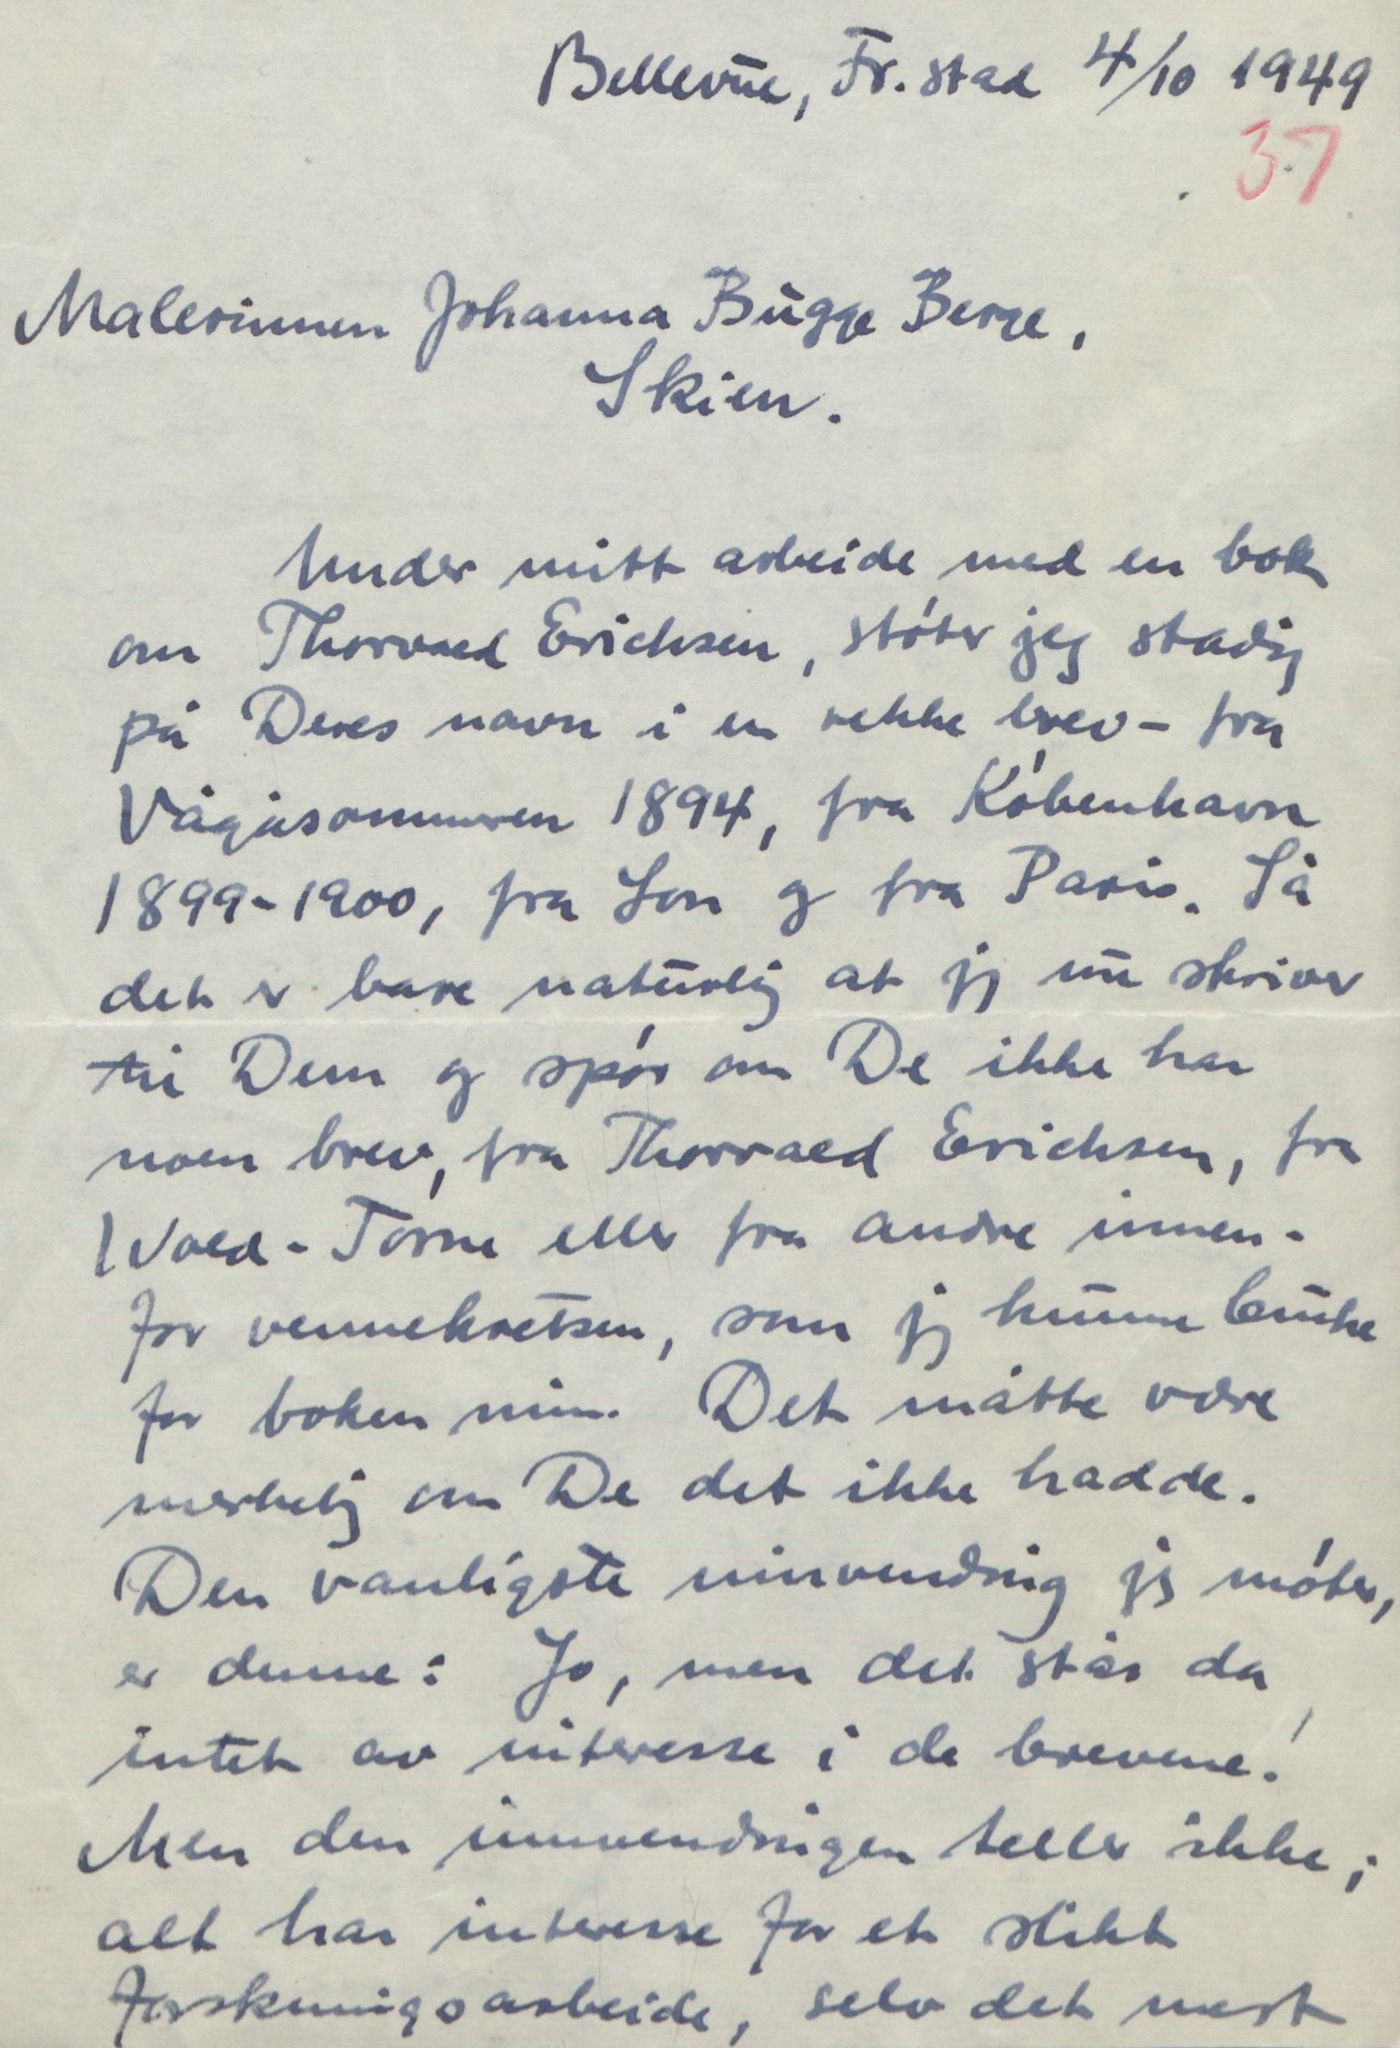 Bellevue, Fr.stad 4/10 1949
37
Malerinnen Johanna Bugge Berge,
Skien.
Under mitt arbeide med en bok
om Thorvald Erichsen, støter jeg stadig
på Deres navn i en rekke brev - fra
Vågåsommeren 1894, fra København
1899-1900, fra Son og fra Paris. Så
det er bare naturlig at jeg nu skriver
til Dem og spør om De ikke har
noen brev, fra Thorvald Erichsen, fra
Wold-Torne eller fra andre innen-
for vennekretsen, som jeg kunne bruke
for boken min. Det måtte være
merkelig om De det ikke hadde.
Den vanligste innvending jeg møter,
er denne: Jo, men det står da
intet av interesse i de brevene!
Men den innvendingen teller ikke;
alt har interesse for et slikt
forskningsarbeide, selv det mest